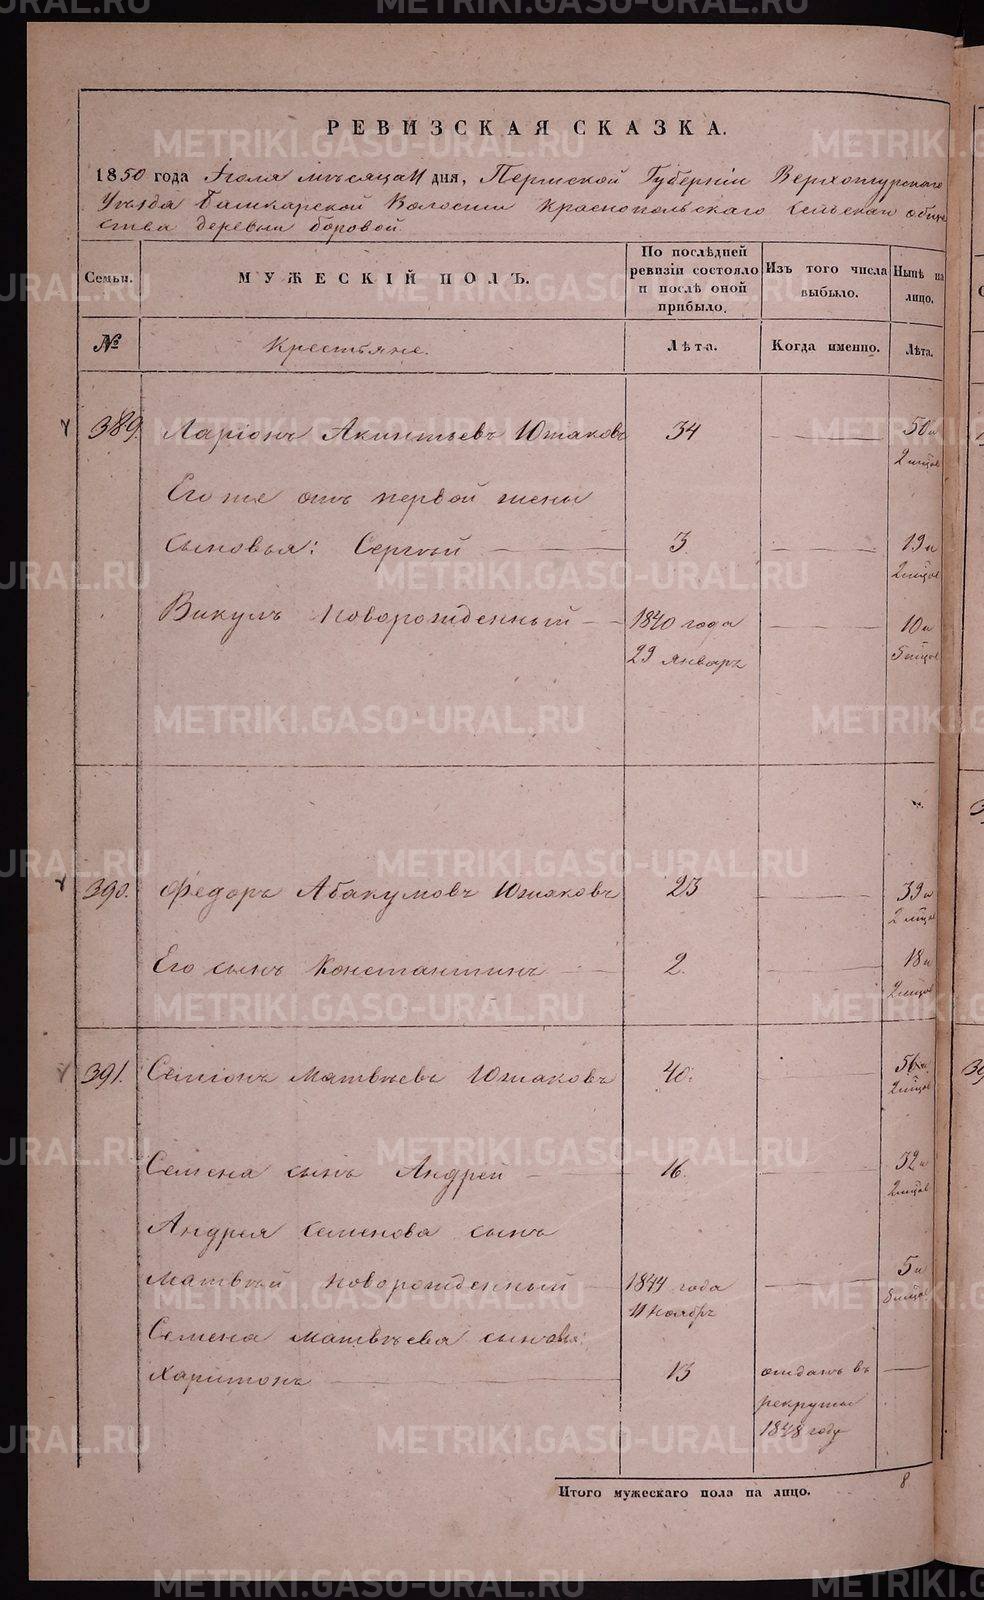 РЕВИЗСКАЯ СКАЗКА.
1850 года Іюля мѣсяца 11 дня, Пермской Губерніи Верхотурскаго
Уѣзда Башкарской Волости Краснопольскаго сельскаго обще
ства деревни боровой.
Семьи.
МУЖЕСКІЙ ПОЛЪ.
По послѣдней
ревизіи состояло
и послѣ оной
прибыло.
Изъ того числа
выбыло.
Нынѣ на
лицо.
№
Крестьяне.
Лѣта.
Когда именно.
Лѣта.
389. Ларіонъ Акинтьевъ Южаковъ 34 50 и
2 мѣсц
Его же отъ первой жены
сыновья: Сергѣй 3 19 и
2 мѣсц
Викулъ новорожденный 1840 года 10 и
29 январь 5 мѣсц
390. Федоръ Абакумовъ Южаковъ 23 39 и
2 мѣсц
Его сынъ Константинъ 2. 18 и
2 мѣсц
391. Семіонъ Матвѣевъ Южаковъ 40. 56 и
2 мѣсц
Семена сынъ Андрей 16. 32 и
2 мѣсц
Андрея Семенова сынъ
Матвѣй новорожденный 1844 года 5 и
11 ноябрь 8 мѣсц
Семена Матвѣева сыновья:
Харитонъ 13 отданъ въ
рекруты
1848 году
Итого мужескаго пола на лицо. 8
METRIKI.GASO-URAL.RU